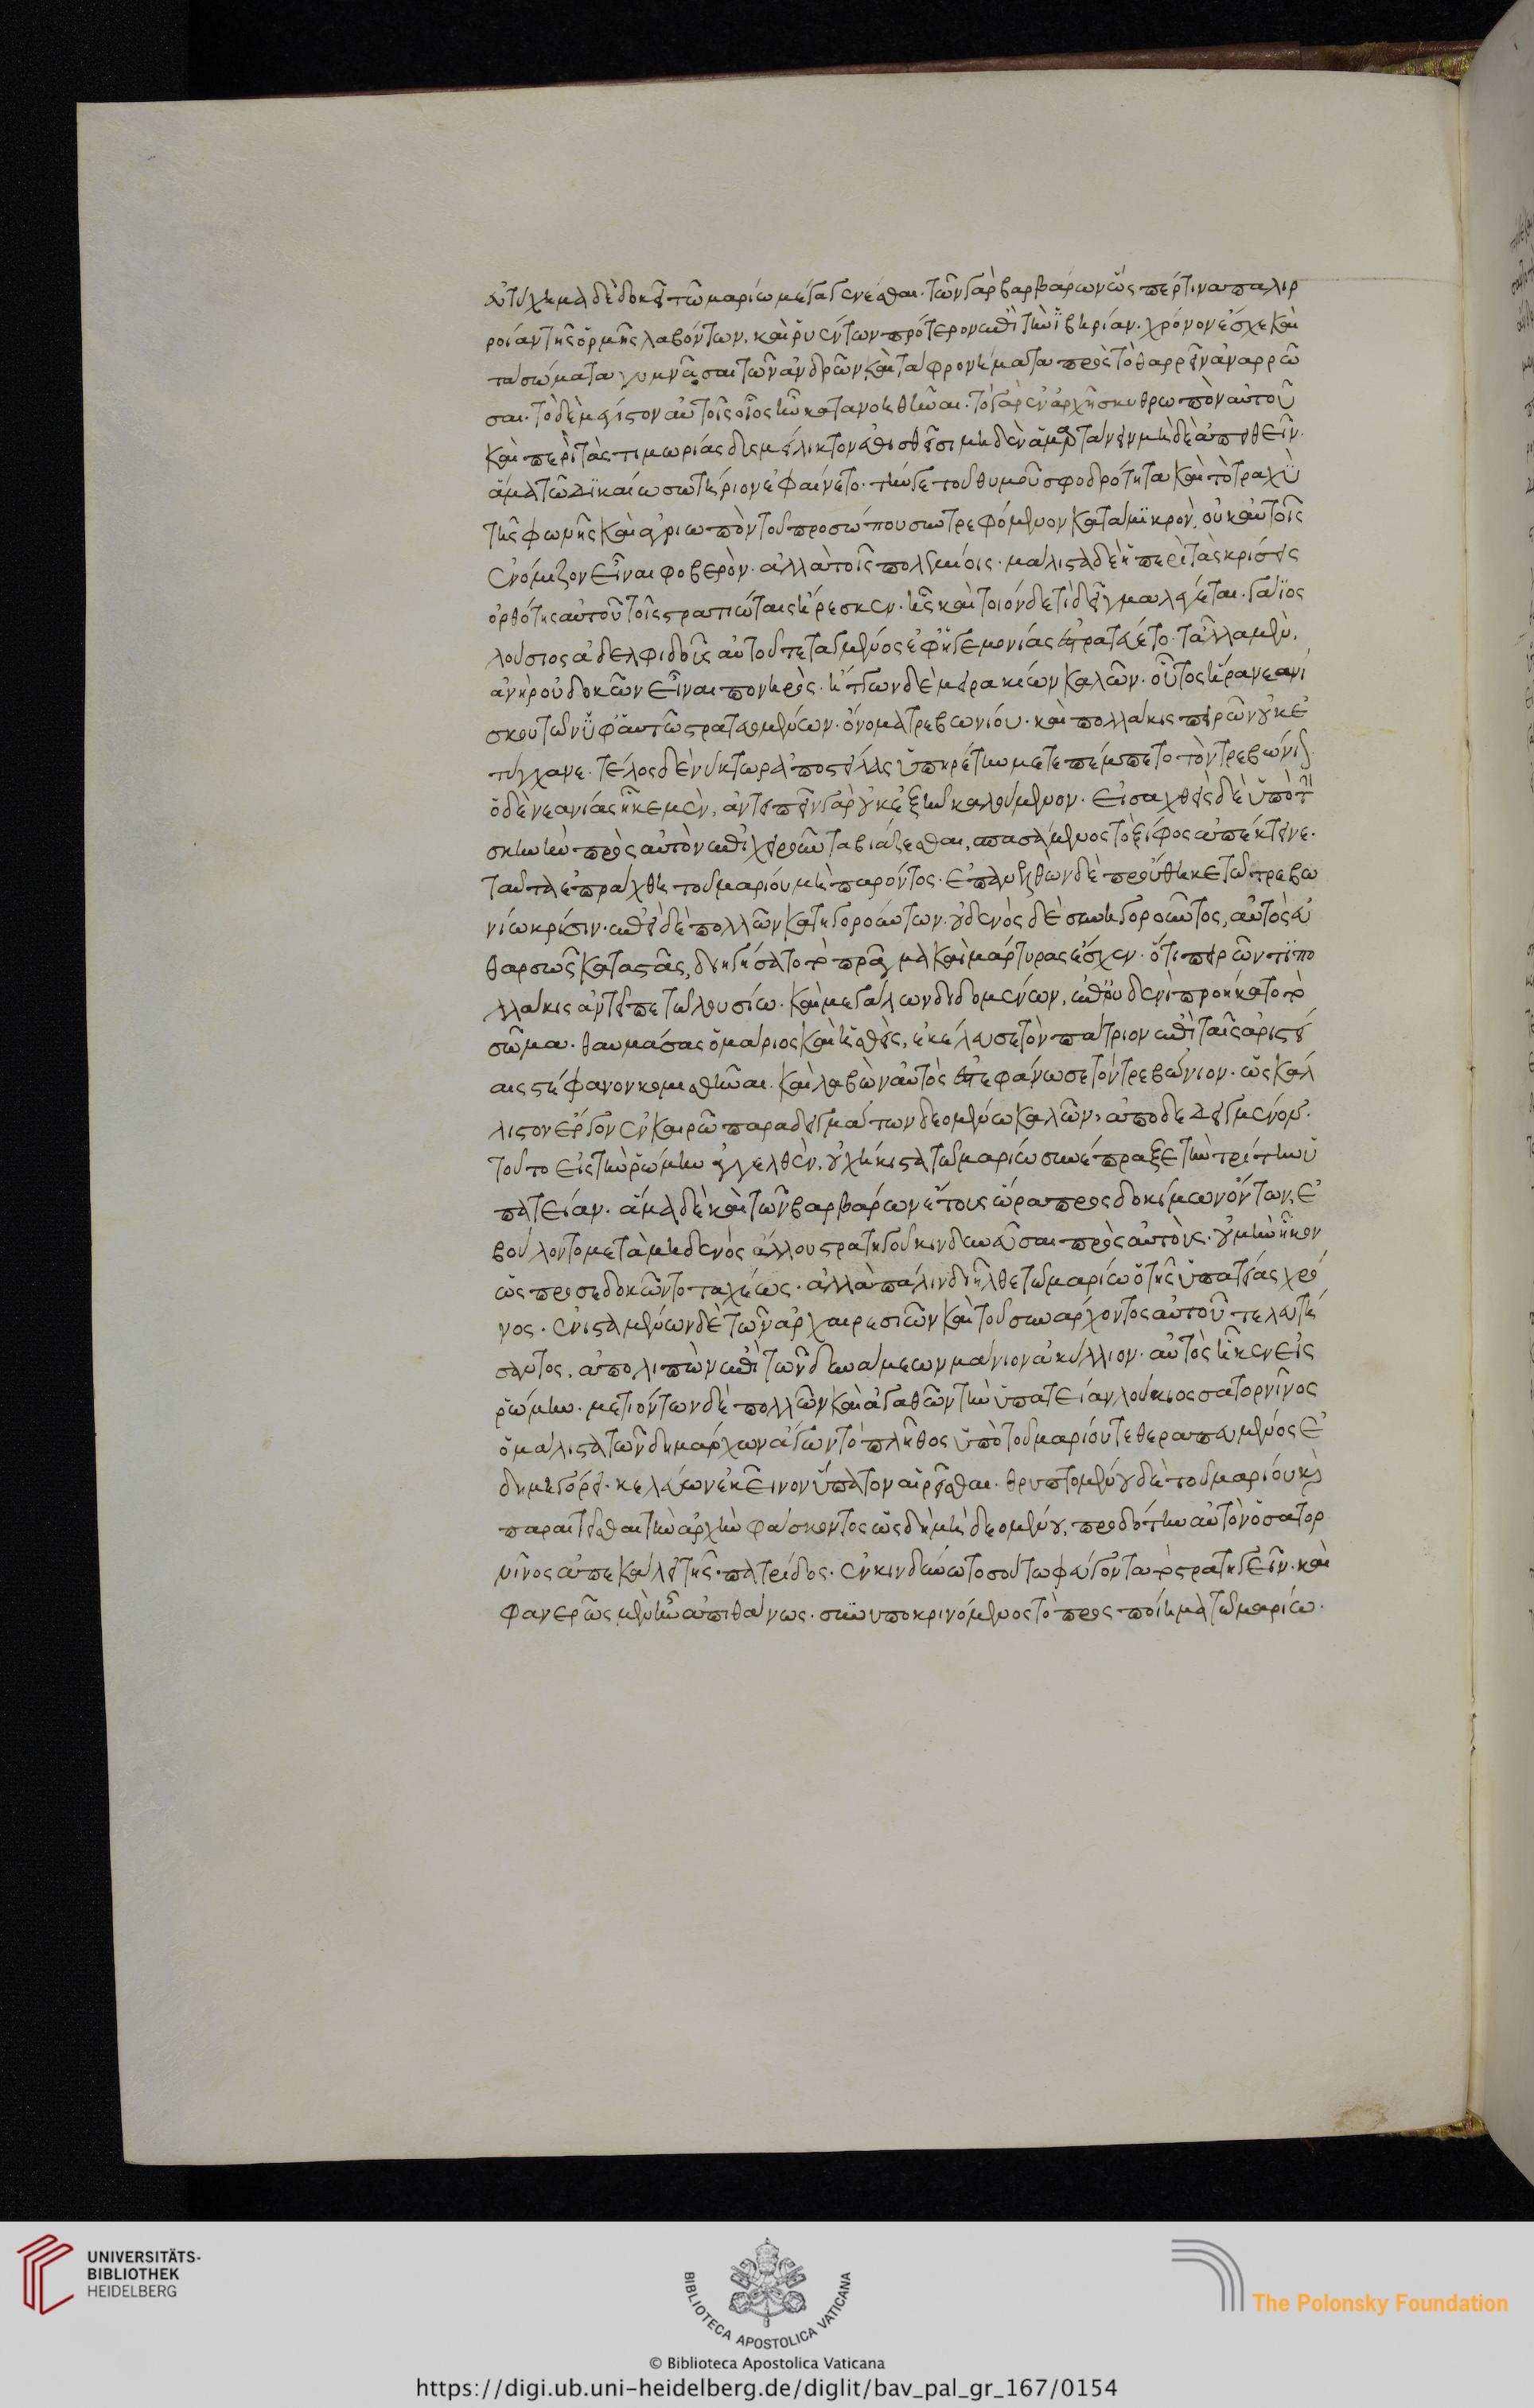 εὐτύχημα δὲ δοκεῖ τῶ μαρίω μέγα γενέσθαι· τῶν γὰρ βαρβάρων ὥσπερ τινα παλιρ
ροίαν τῆς ὁρμῆς λαβόντων, καὶ ῥυέντων πρότερον ἐπὶ τὴν ἰβηρίαν· χρόνον ἔσχε καὶ
τὰ σώματα γυμνᾶσαι τῶν ἀνδρῶν καὶ τὰ φρονήματα πρὸς τὸ θαρρεῖν ἀναρρῶ
σαι· τὸ δὲ μέγιστον αὐτοῖς οἷος ἦν κατανοηθῆναι· τὸ γὰρ ἐν ἀρχῆ σκυθρωπὸν αὐτοῦ
καὶ περὶ τὰς τιμωρίας δυσμείλικτον ἐθισθεῖσι μηδὲν ἁμαρτάνειν μὴδὲ ἀπειθεῖν·
ἅμα τῶ δικαίω σωτήριον ἐφαίνετο· τήν τε τοῦ θυμοῦ σφοδρότητα καὶ τὸ τραχὺ
τῆς φωνῆς καὶ ἀγριωπὸν τοῦ προσώπου συντρεφόμενον κατὰ μικρὸν, οὐκ αὑτοῖς
ἐνόμιζον εἶναι φοβερὸν· ἀλλὰ τοῖς πολεμίοις· μάλιστα δὲ ἡ περὶ τὰς κρίσεις
ὀρθότης αὐτοῦ τοῖς στρατιώταις ἤρεσκεν· ἧς καὶ τοιόνδέ τι δεῖγμα λέγεται· γάϊος
λούσιος ἀδελφιδοῦς αὐτοῦ τεταγμένος ἐφ' ἡγεμονίας ἐστρατεύετο· τἆλλα μὲν,
ἀνὴρ οὐ δοκῶν εἶναι πονηρὸς· ἥττων δὲ μειρακίων καλῶν· οὗτος ἤρα νεανί
σκου τῶν ὑφ' αὑτῶ στρατευομένων· ὄνομα τρεβωνίου· καὶ πολλάκις πειρῶν οὐκ ἐ
τύγχανε· τέλος δὲ νύκτωρ ἀποστείλας ὑπηρέτην μετεπέμπετο τὸν τρεβώνιον·
ὁ δὲ νεανίας ἧκε μὲν, ἀντειπεῖν γὰρ οὐκ ἐξῆν καλούμενον· εἰσαχθεὶς δὲ ὑπὸ τὴν
σκηνὴν πρὸς αὐτὸν ἐπιχειροῦντα βιάζεσθαι, σπασάμενος τὸ ξίφος ἀπέκτεινε·
ταῦτα ἐπράχθη τοῦ μαρίου μὴ παρόντος· ἐπανελθὼν δὲ προὔθηκε τῶ τρεβω
νίω κρίσιν· ἐπεὶ δὲ πολλῶν κατηγορούντων· οὐδενὸς δὲ συνηγοροῦντος, αὐτὸς εὐ
θαρσῶς καταστὰς, διηγήσατο τὸ πρᾶγμα καὶ μάρτυρας ἔσχεν· ὅτι πειρῶντι πο
λλάκις ἀντεῖπε τῶ λουσίω· καὶ μεγάλων διδομένων, ἐπ' οὐδενὶ προήκατο τὸ
σῶμα· θαυμάσας ὁ μάριος καὶ ἡσθεὶς, ἐκέλευσε τὸν πάτριον ἐπὶ ταῖς ἀριστεί
αις στέφανον κομισθῆναι· καὶ λαβὼν αὐτὸς ἐστεφάνωσε τὸν τρεβώνιον· ὡς κάλ
λιστον ἔργον ἐν καιρῶ παραδειγμάτων δεομένω καλῶν, ἀποδεδειγμένον·
τοῦτο εἰς τὴν ῥώμην ἀγγελθὲν, οὐχ ἥκιστα τῶ μαρίω συνέπραξε τὴν τρίτην ὑ
πατείαν· ἅμα δὲ καὶ τῶν βαρβάρων ἔτους ὥρα προσδοκίμων ὄντων, ἐ
βούλοντο μετὰ μηδενὸς ἄλλου στρατηγοῦ κινδυνεῦσαι πρὸς αὐτοὺς· οὐ μὴν ἧκον
ὡς προσεδοκῶντο ταχέως· ἀλλὰ πάλιν διῆλθε τῶ μαρίω ὁ τῆς ὑπατείας χρό
νος· ἐνισταμένων δὲ τῶν ἀρχαιρεσιῶν καὶ τοῦ συνάρχοντος αὐτοῦ τελευτή
σαντος, ἀπολιπὼν ἐπὶ τῶν δυνάμεων μάνιον ἀκύλλιον· αὐτὸς ἧκεν εἰς
ῥώμην· μετιόντων δὲ πολλῶν καὶ ἀγαθῶν τὴν ὑπατείαν λούκιος σατορνῖνος
ὁ μάλιστα τῶν δημάρχων ἄγων τὸ πλῆθος ὑπὸ τοῦ μαρίου τεθεραπευμένος ἐ
δημηγόρει· κελεύων ἐκεῖνον ὕπατον αἱρεῖσθαι· θρυπτομένου δὲ τοῦ μαρίου καὶ
παραιτεῖσθαι τὴν ἀρχὴν φάσκοντος ὡς δὴ μὴ δεομένου, προδότην αὐτὸν ὁ σατορ
νῖνος ἀπεκάλει τῆς πατρίδος· ἐν κινδύνω τοσούτω φεύγοντα τὸ στρατηγεῖν· καὶ
φανερῶς μὲν ἦν ἀπιθάνως· συνυποκρινόμενος τὸ προσποίημα τῶ μαρίω·
UNIVERSITÄTS-
BIBLIOTHEK
HEIDELBERG
BIBLIOTECA APOSTOLICA VATICANA
The Polonsky Foundation
© Biblioteca Apostolica Vaticana
https://digi.ub.uni-heidelberg.de/diglit/bav_pal_gr_167/0154